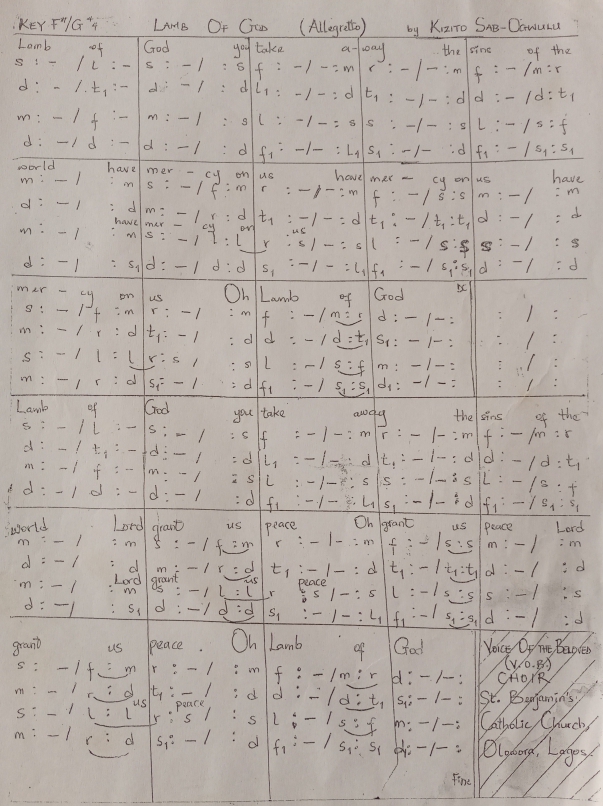 KEY F#/G 4/4 LAMB OF GOD (Allegretto) by KIZITO SAB-OCHWULU
Lamb of God you take a-way the sins of the
s : - / l : - s : - / : s f : - / - : m r : - / - : m f : - / m : r
d : - / t₁ : - d : - / : d l₁ : - / - : d t₁ : - / - : d d : - / d : t₁
m : - / f : - m : - / : s l : - / - : s s : - / - : s l : - / s : f
d : - / d : - d : - / : d f₁ : - / - : l₁ s₁ : - / - : d f₁ : - / s₁ : s₁
world have mer - cy on us have mer - cy on us have
m : - / : m s : - / f : m r : - / - : m f : - / s : s m : - / : m
d : - / : d m : - / r : d t₁ : - / - : d t₁ : - / t₁ : t₁ d : - / : d
have mer - cy on us
m : - / : m s : - / l : l r : s / - : s l : - / s : s s : - / : s
d : - / : s₁ d : - / d : d s₁ : - / - : l₁ f₁ : - / s₁ : s₁ d : - / : d
mer - cy on us Oh Lamb of God DC
s : - / f : m r : - / : m f : - / m : r d : - / - :
m : - / r : d t₁ : - / : d d : - / d : t₁ s₁ : - / - :
s : - / l : l r : s : s l : - / s : f m : - / - :
m : - / r : d s₁ : - / : d f₁ : - / s₁ : s₁ d₁ : - / - :
Lamb of God you take away the sins of the
s : - / l : - s : - / : s f : - / - : m r : - / - : m f : - / m : r
d : - / t₁ : - d : - / : d l₁ : - / - : d t₁ : - / - : d d : - / d : t₁
m : - / f : - m : - / : s l : - / - : s s : - / - : s l : - / s : f
d : - / d : - d : - / : d f₁ : - / - : l₁ s₁ : - / - : d f₁ : - / s₁ : s₁
world Lord grant us peace Oh grant us peace Lord
m : - / : m s : - / f : m r : - / - : m f : - / s : s m : - / : m
d : - / : d m : - / r : d t₁ : - / - : d t₁ : - / t₁ : t₁ d : - / : d
Lord grant us peace
m : - / : m s : - / l : l r : s / - : s l : - / s : s s : - / : s
d : - / : s₁ d : - / d : d s₁ : - / - : l₁ f₁ : - / s₁ : s₁ d : - / : d
grant us peace. Oh Lamb of God
s : - / f : m r : - / : m f : - / m : r d : - / - :
m : - / r : d t₁ : - / : d d : - / d : t₁ s₁ : - / - :
us peace
s : - / l : l r : s / : s l : - / s : f m : - / - :
m : - / r : d s₁ : - / : d f₁ : - / s₁ : s₁ d₁ : - / - :
Fine
VOICE OF THE BELOVED
(V.O.B.)
CHOIR
St. Benjamin's
Catholic Church,
Olowora, Lagos.